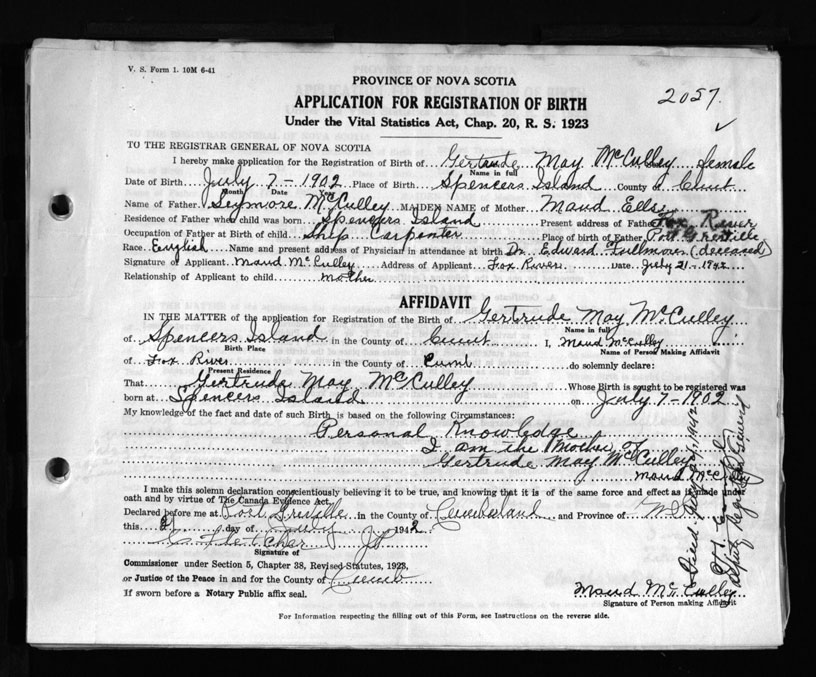 V. S. Form 1. 10M 6-41
PROVINCE OF NOVA SCOTIA
2057.
APPLICATION FOR REGISTRATION OF BIRTH
Under the Vital Statistics Act, Chap. 20, R. S. 1923
TO THE REGISTRAR GENERAL OF NOVA SCOTIA
I hereby make application for the Registration of Birth of Gertrude May McCulley female
Name in full
Date of Birth July 7-1902 Place of Birth Spencers Island County of Cum't
Month Date Year
Name of Father Seymore McCulley MAIDEN NAME of Mother Maud Ells
Residence of Father when child was born Spencers Island Present address of Father Fox River
Occupation of Father at Birth of child Ship Carpenter Place of birth of Father Port Greville
Race English Name and present address of Physician in attendance at birth Dr. Edward (deceased)
Signature of Applicant Maud McCulley Address of Applicant Fox River Date July 21-1942
Relationship of Applicant to child mother
AFFIDAVIT
IN THE MATTER of the application for Registration of the Birth of Gertrude May McCulley
Name in full
of Spencers Island in the County of Cum't I, Maud McCulley
Birth Place Name of Person Making Affidavit
of Fox River in the County of Cuml do solemnly declare:
Present Residence
That Gertrude May McCulley Whose Birth is sought to be registered was
born at Spencers Island on July 7-1902
My knowledge of the fact and date of such Birth is based on the following Circumstances:
Personal Knowledge
I am the Mother of
Gertrude May McCulley
Maud McC
I make this solemn declaration conscientiously believing it to be true, and knowing that it is of the same force and effect as if made under
oath and by virtue of The Canada Evidence Act.
Declared before me at Port Greville in the County of Cumberland and Province of N.S.
this 21 day of July 1942
Fletcher J.P.
Signature of
Commissioner under Section 5, Chapter 38, Revised Statutes, 1923,
or Justice of the Peace in and for the County of Cumb
If sworn before a Notary Public affix seal.
Maud McCulley
Signature of Person making Affidavit
For Information respecting the filling out of this Form, see Instructions on the reverse side.
Filed 1942
Deputy Registrar General